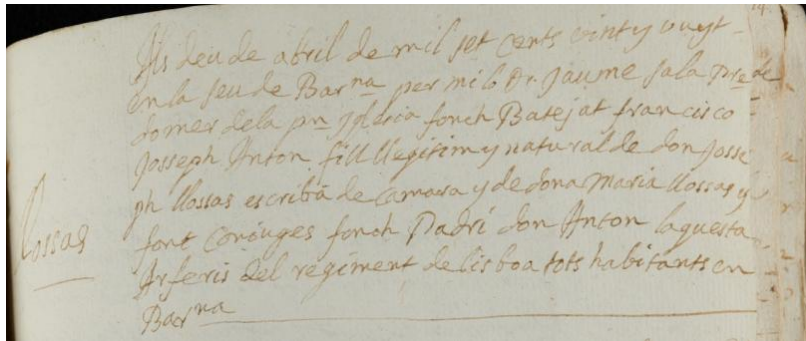 Als deu de abril de mil set cents vint y vuyt
en la seu de Barna per mi lo Dr. Jaume Sala Pre
domer dela pnt Iglesia fonch Batejat francisco
Josseph Anton fill llegitim y natural de don Josse
ph llossas escribá de Camara y de dona Maria llossas y
font Coniuges fonch Padrí don Anton laguesta
Arferis del regiment de lisboa tots habitants en
Barna
llossas